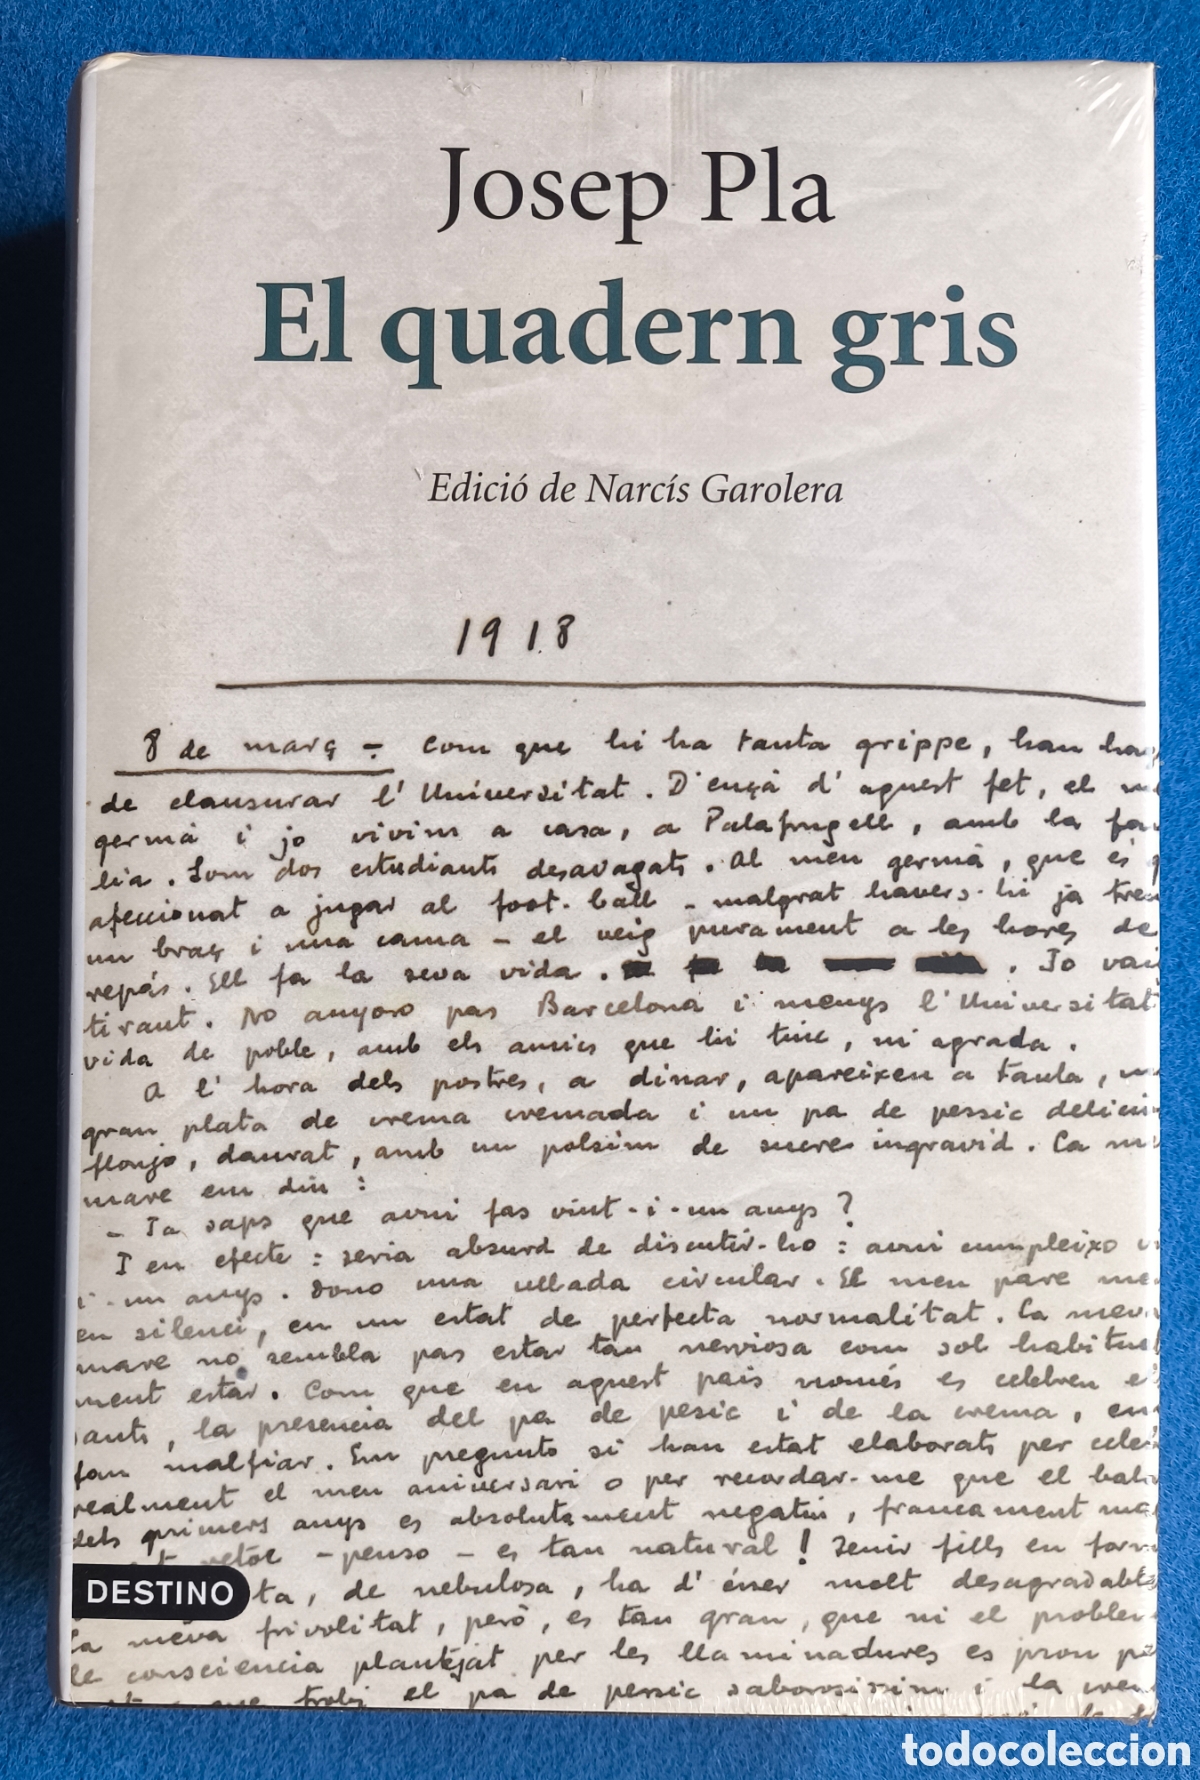 Josep Pla
El quadern gris
Edició de Narcís Garolera
1918
8 de març - Com que hi ha tanta grippe, han ha
de clausurar l'Universitat. D'ençà d'aquest fet, el m
germà i jo vivim a casa, a Palafrugell, amb la fa
lia. Som dos estudiants desvagats. Al meu germà, que és
afeccionat a jugar al foot-ball - malgrat havers-hi ja tren
un braç i una cama - el veig purament a les hores de
repàs. Ell fa la seva vida. . Jo vai
tirant. No anyoro pas Barcelona i menys l'Universitat
vida de poble, amb els amics que hi tinc, m'agrada.
A l'hora dels postres, a dinar, apareixen a taula, u
gran plata de crema cremada i un pa de pessic delici
flonjo, daurat, amb un polsim de sucre ingravid. Ca m
mare em diu :
- Ja saps que avui fas vint-i-un anys ?
I en efecte : seria absurd de discutir-ho : avui cumpleixo v
i-un anys. Dono una ullada circular. El meu pare me
en silenci, en un estat de perfecta normalitat. La meva
mare no sembla pas estar tan nerviosa com sol habitual
ment estar. Com que en aquest pais només es celebren e
sants, la presencia del pa de pesic i de la crema, em
fan malfiar. Em pregunto si han estat elaborats per cele
realment el meu aniversari o per recordar-me que el bala
dels primers anys es absolutament negatiu, francament ma
petoe - penso - es tan natural ! Tenir fills en form
DESTINO
ta, de nebulosa, ha d'ésser molt desagradable
La meva frivolitat, però, es tan gran, que ni el proble
de consciencia plantejat per les llaminadures es prou pe
que trobi el pa de pessic saborosissim i la crem
todocoleccion